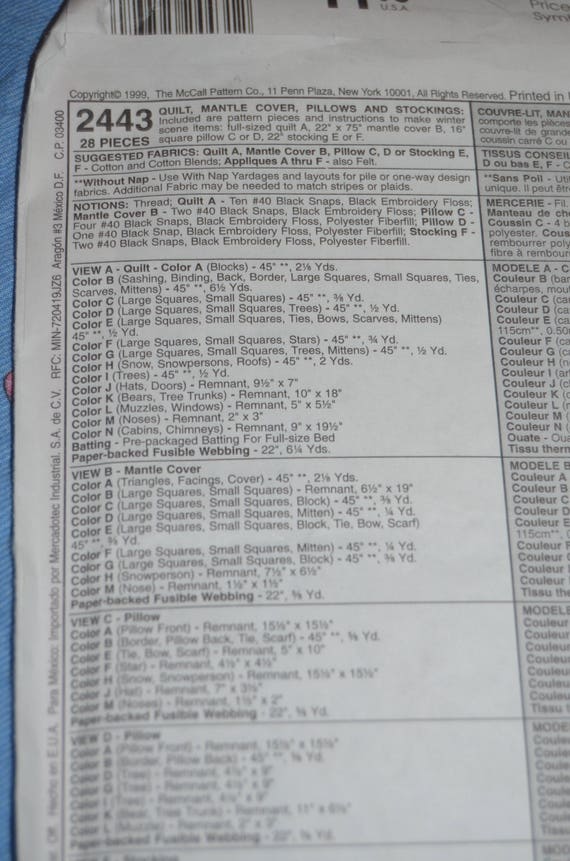 U.S.A.
Price
Copyright© 1999, The McCall Pattern Co., 11 Penn Plaza, New York 10001, All Rights Reserved. Printed in
2443
28 PIECES
QUILT, MANTLE COVER, PILLOWS AND STOCKINGS:
Included are pattern pieces and instructions to make winter
scene items: full-sized quilt A, 22" x 75" mantle cover B, 16"
square pillow C or D, 22" stocking E or F.
SUGGESTED FABRICS: Quilt A, Mantle Cover B, Pillow C, D or Stocking E,
F - Cotton and Cotton Blends; Appliques A thru F - also Felt.
**Without Nap - Use With Nap Yardages and layouts for pile or one-way design
fabrics. Additional Fabric may be needed to match stripes or plaids.
NOTIONS: Thread; Quilt A - Ten #40 Black Snaps, Black Embroidery Floss;
Mantle Cover B - Two #40 Black Snaps, Black Embroidery Floss; Pillow C -
Four #40 Black Snaps, Black Embroidery Floss, Polyester Fiberfill; Pillow D -
One #40 Black Snap, Black Embroidery Floss, Polyester Fiberfill; Stocking F -
Two #40 Black Snaps, Black Embroidery Floss, Polyester Fiberfill.
VIEW A - Quilt - Color A (Blocks) - 45" **, 2⅛ Yds.
Color B (Sashing, Binding, Back, Border, Large Squares, Small Squares, Ties,
Scarves, Mittens) - 45" **, 6½ Yds.
Color C (Large Squares, Small Squares) - 45" **, ⅜ Yd.
Color D (Large Squares, Small Squares, Trees) - 45" **, ½ Yd.
Color E (Large Squares, Small Squares, Ties, Bows, Scarves, Mittens)
45" **, ½ Yd.
Color F (Large Squares, Small Squares, Stars) - 45" **, ¾ Yd.
Color G (Large Squares, Small Squares, Trees, Mittens) - 45" **, ½ Yd.
Color H (Snow, Snowpersons, Roofs) - 45" **, 2 Yds.
Color I (Trees) - 45" **, ½ Yd.
Color J (Hats, Doors) - Remnant, 9½" x 7"
Color K (Bears, Tree Trunks) - Remnant, 10" x 18"
Color L (Muzzles, Windows) - Remnant, 5" x 5½"
Color M (Noses) - Remnant, 2" x 3"
Color N (Cabins, Chimneys) - Remnant, 9" x 19½"
Batting - Pre-packaged Batting For Full-size Bed
Paper-backed Fusible Webbing - 22", 6¼ Yds.
VIEW B - Mantle Cover
Color A (Triangles, Facings, Cover) - 45" **, 2⅛ Yds.
Color B (Large Squares, Small Squares) - Remnant, 6½" x 19"
Color C (Large Squares, Small Squares, Block) - 45" **, ⅜ Yd.
Color D (Large Squares, Small Squares, Mitten) - 45" **, ¼ Yd.
Color E (Large Squares, Small Squares, Block, Tie, Bow, Scarf)
45" **, ⅜ Yd.
Color F (Large Squares, Small Squares, Mitten) - 45" **, ¼ Yd.
Color G (Large Squares, Small Squares, Block) - 45" **, ⅜ Yd.
Color H (Snowperson) - Remnant, 7½" x 6½"
Color M (Nose) - Remnant, 1½" x 1½"
Paper-backed Fusible Webbing - 22", ⅝ Yd.
VIEW C - Pillow
Color A (Pillow Front) - Remnant, 15½" x 15½"
Color B (Border, Pillow Back, Tie, Scarf) - 45" **, ⅝ Yd.
Color E (Tie, Bow, Scarf) - Remnant, 5" x 10"
Color F (Star) - Remnant, 4½" x 4½"
Color H (Snow, Snowperson) - Remnant, 15½" x 15½"
Color J (Hat) - Remnant, 7" x 3½"
Color M (Noses) - Remnant, 1½" x 2"
Paper-backed Fusible Webbing - 22", Yd.
VIEW D - Pillow
Color A (Pillow Front) - Remnant, 15½" x 15½"
Color B (Border, Pillow Back) - 45" **, Yd.
Color D (Tree) - Remnant,
Color G (Tree) - Remnant,
Color I (Tree) - Remnant,
Color K (Bear, Tree Trunks) - Remnant,
Color L (Muzzle) - Remnant,
Paper-backed Fusible Webbing - 22", Yd.
COUVRE-LIT, MAN
comporte les pièces
couvre-lit de grande
coussin carré C ou
TISSUS CONSEIL
D ou bas E, F - C
**Sans Poil - Uti
unique. Il peut êtr
MERCERIE - Fil.
Manteau de che
Coussin C - 4 b
polyester. Cous
rembourrer poly
fibre à rembour
MODELE A - C
Couleur B (bar
écharpes, mou
Couleur C (ca
Couleur D (ca
Couleur E (ca
115cm**, 0.50
Couleur F (ca
Couleur G (ca
Couleur H (n
Couleur I (ar
Couleur J (c
Couleur K (o
Couleur L (
Couleur M (
Couleur N (
Ouate - Oua
Tissu therm
MODELE B
Couleur A
Couleur B
Couleur C
Couleur D
Couleur E
115cm**,
Couleur F
Couleur G
Couleur H
Couleur M
Tissu the
MODELE
Couleur
Couleur
Couleur
Couleur
Couleur
Couleur
Couleur
Tissu
Hecho en E.U.A. Para México: Importado por Mercadotec Industrial, S.A. de C.V. RFC: MIN-720419JZ6 Aragón #3 México D.F. C.P. 03400